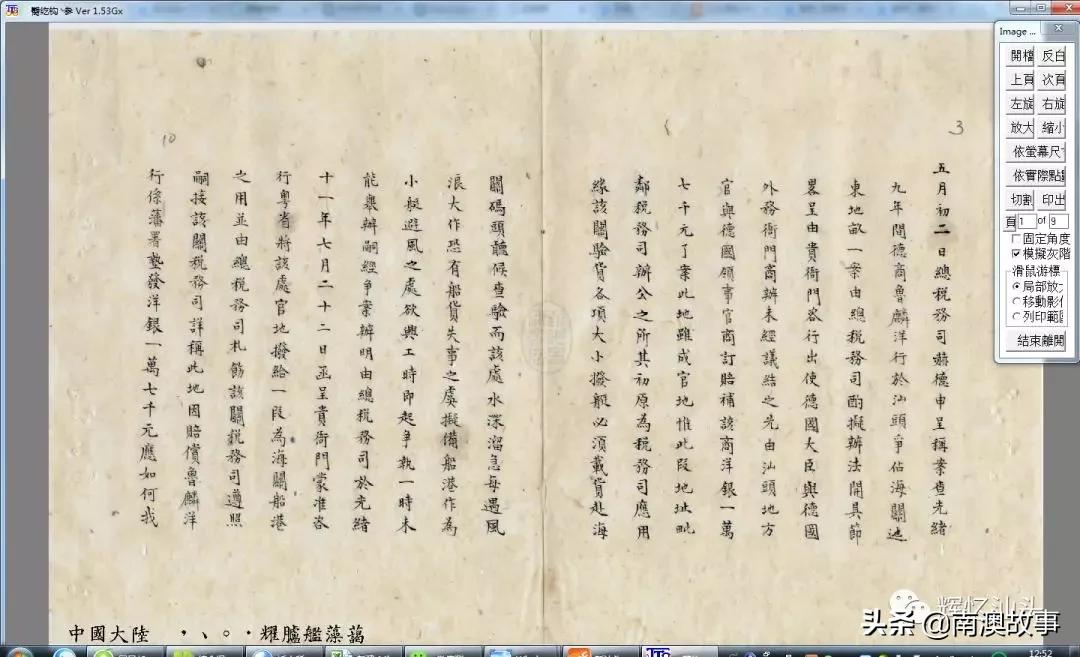 Ver 1.53Gx
Image ...
開檔 反白
上頁 次頁
左旋 右旋
放大 縮小
依螢幕尺寸
依實際點
切割 印出
頁 1 of 9
固定角度
模擬灰階
滑鼠游標
局部放大
移動影像
列印範圍
結束離開
3
五月初二日總稅務司赫德申呈稱案查光緒
九年間德商魯麟洋行於汕頭爭佔海關迤
東地畝一案由總稅務司酌擬辦法開具節
畧呈由貴衙門咨行出使德國大臣與德國
外務衙門商辦未經議結之先由汕頭地方
官與德國領事官商訂賠補該商洋銀一萬
七千元了案此地雖成官地惟此段地址毗
鄰稅務司辦公之所其初原為稅務司應用
緣該關驗貨各項大小撥艇必須載貨赴海
關碼頭聽候查驗而該處水深溜急每遇風
浪大作恐有船貨失事之虞擬備船港作為
小艇避風之處欲興工時即起爭執一時未
能舉辦嗣經爭案辦明由總稅務司於光緒
十一年七月二十二日函呈貴衙門蒙准咨
行粵省將該處官地撥給一段為海關船港
之用並由總稅務司札飭該關稅務司遵照
嗣接該關稅務司詳稱此地因賠償魯麟洋
行係藩署墊發洋銀一萬七千元應如何我
10
中國大陸 耀臚艦藻藹
辉忆汕头
头条 @南澳故事
12:52